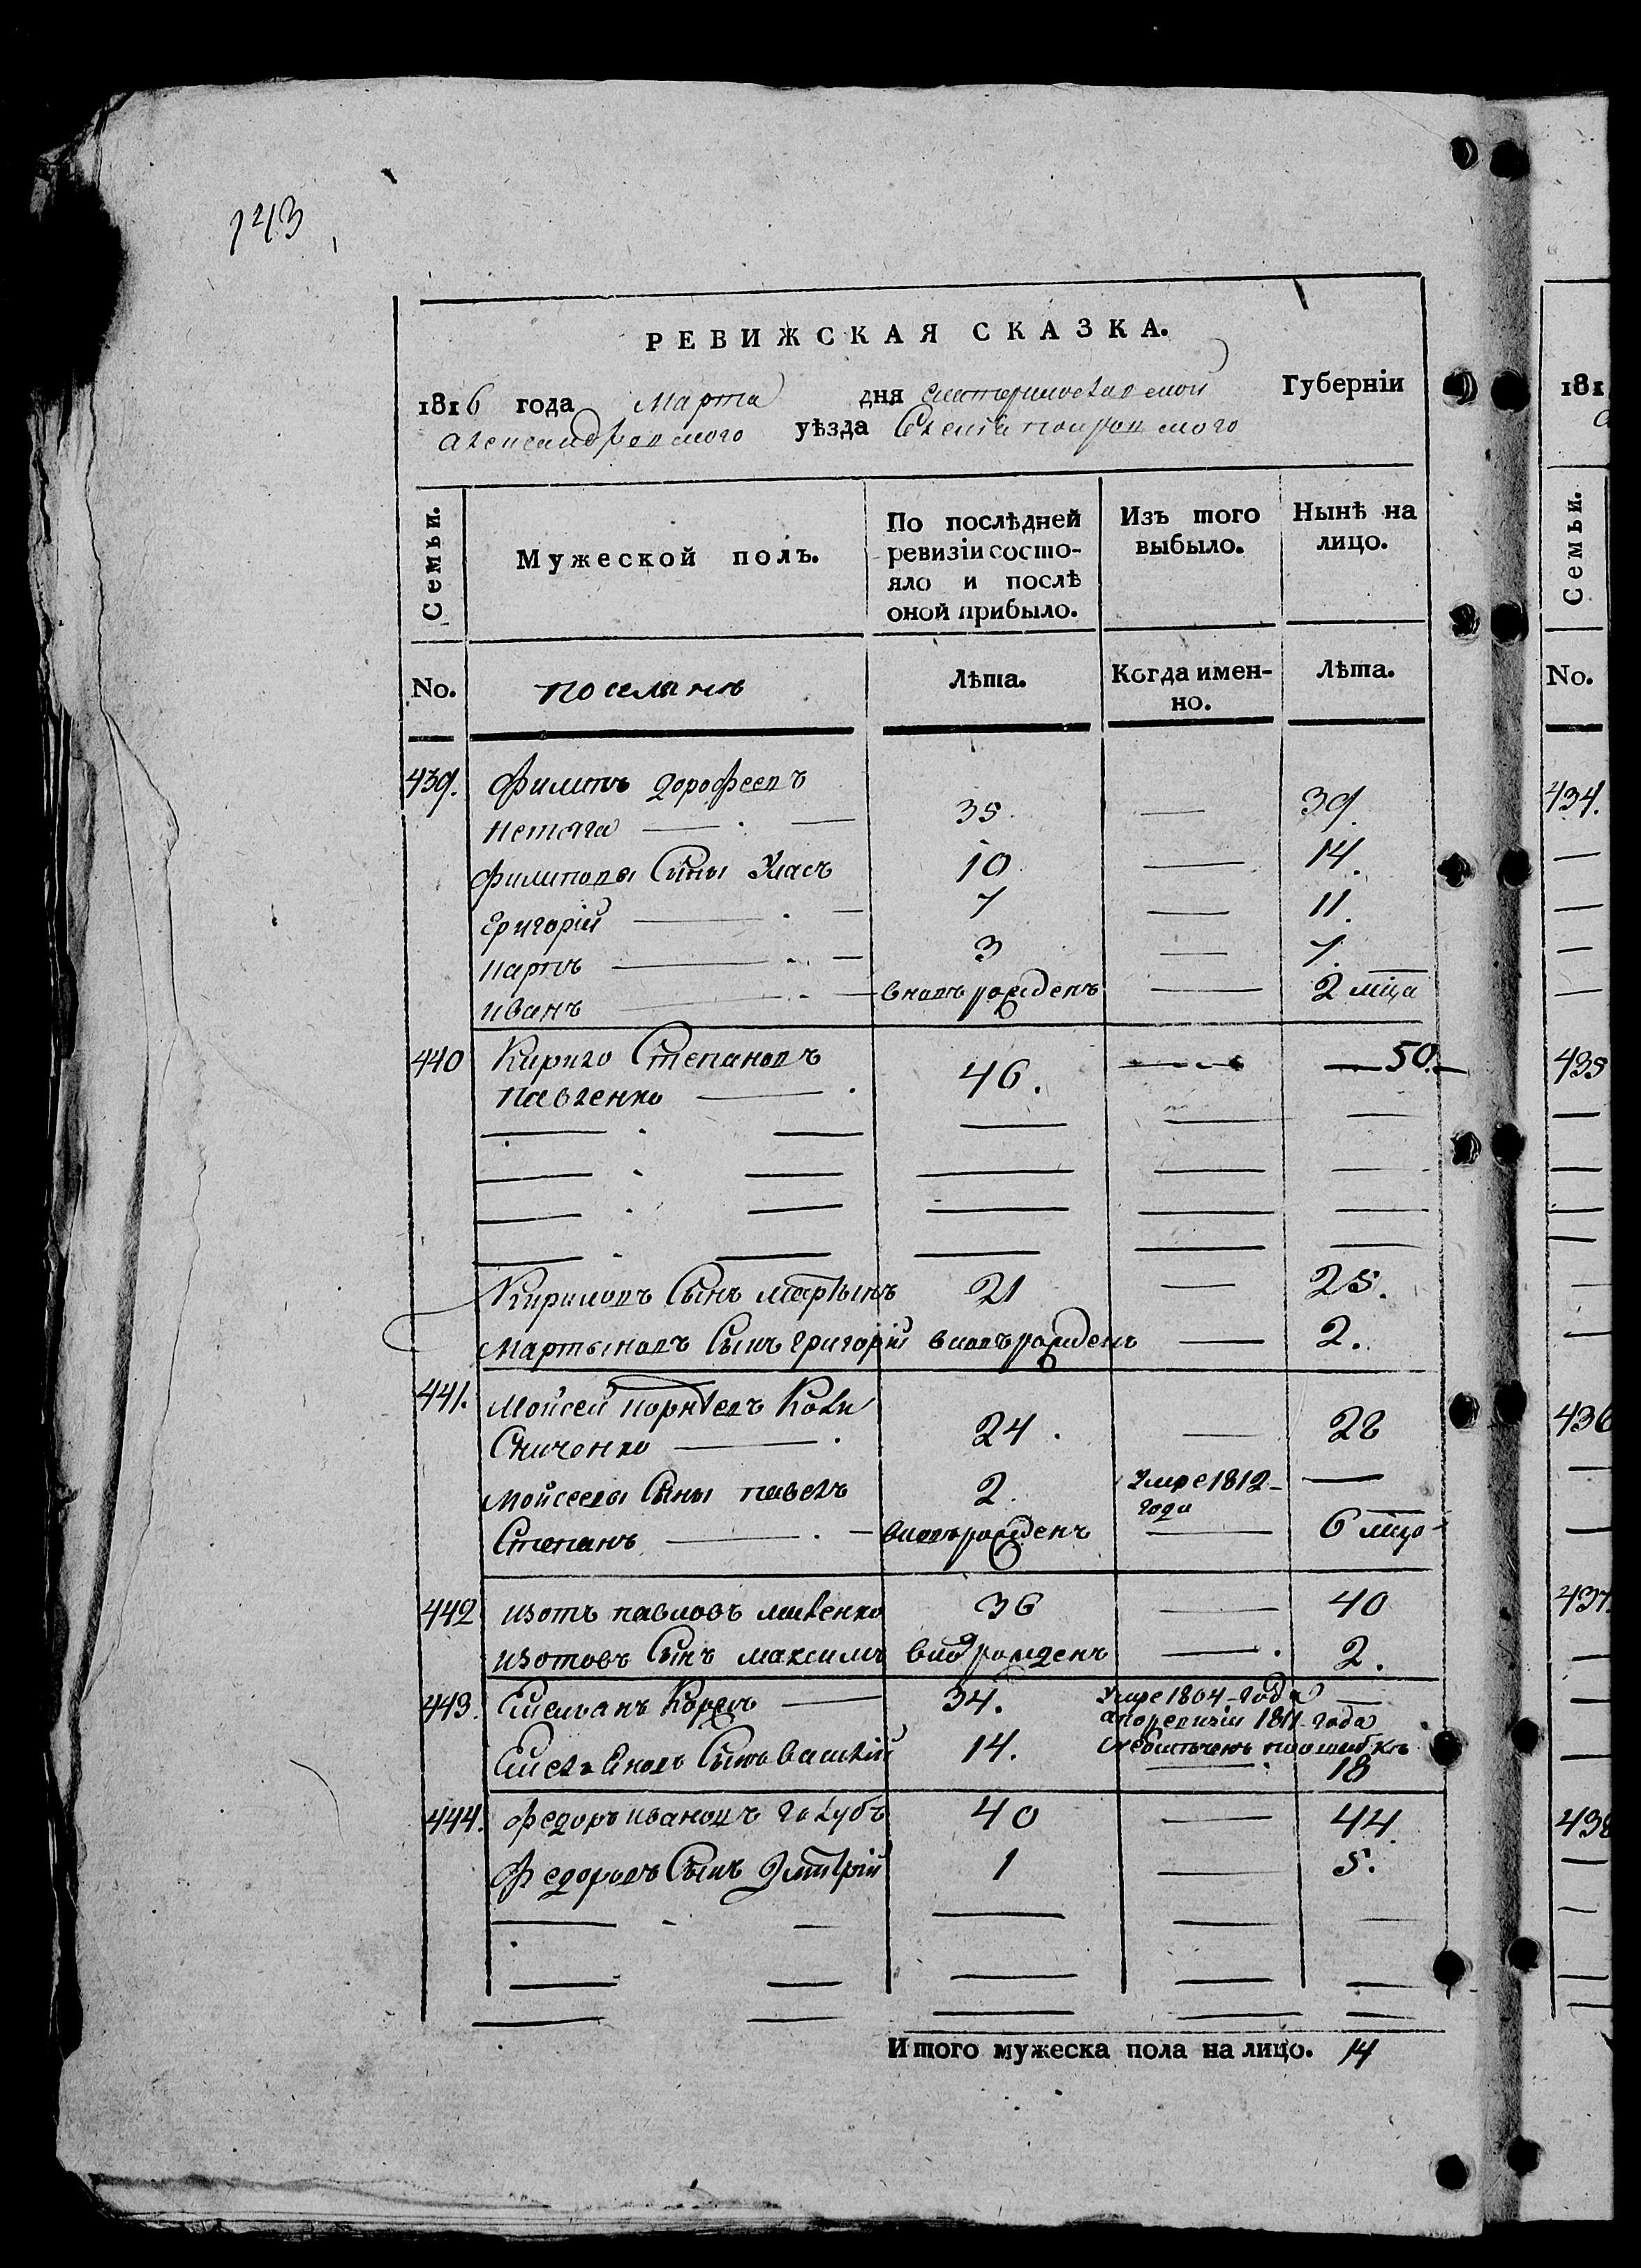 143
РЕВИЖСКАЯ СКАЗКА.
1816 года Марта дня Екатеринославской Губерніи
Александровского уѣзда Селенія покровского
Семьи.
Мужеской полъ.
По послѣдней ревизіи состо-
яло и послѣ
оной прибыло.
Изъ того
выбыло.
Нынѣ на
лицо.
No.
поселянъ
Лѣта.
Когда имен-
но.
Лѣта.
439. Филипъ дорофеевъ
Нетяга 35. 39.
филиповы Сыны Уласъ 10 14.
Григорій 7 11.
карпъ 3 7.
иванъ вновь рожденъ 2 мца
440 Кирило Степановъ
Павленко 46. 50.
Кириловъ Сынъ мартынъ 21 25.
мартыновъ Сынъ григорій вновь рожденъ 2.
441. Мойсей корнѣевъ Кол
Сниченко 24. 28
мойсеевы Сыны павелъ 2. Умре 1812-
года
Степанъ вновь рожденъ 6 мцо
442 изотъ павловъ 36 40
изотовъ Сынъ максимъ внов рожденъ 2.
443. Емельянъ 34. Умре 1804-года
а по ревизіи 1811-года
Емельяновъ Сынъ василій 14. 18
444. Федоръ ивановъ голубъ 40 44.
Федоровъ Сынъ Дмитрій 1 5.
Итого мужеска пола на лицо. 14
181
Семьи.
No.
434.
435
436
437.
438